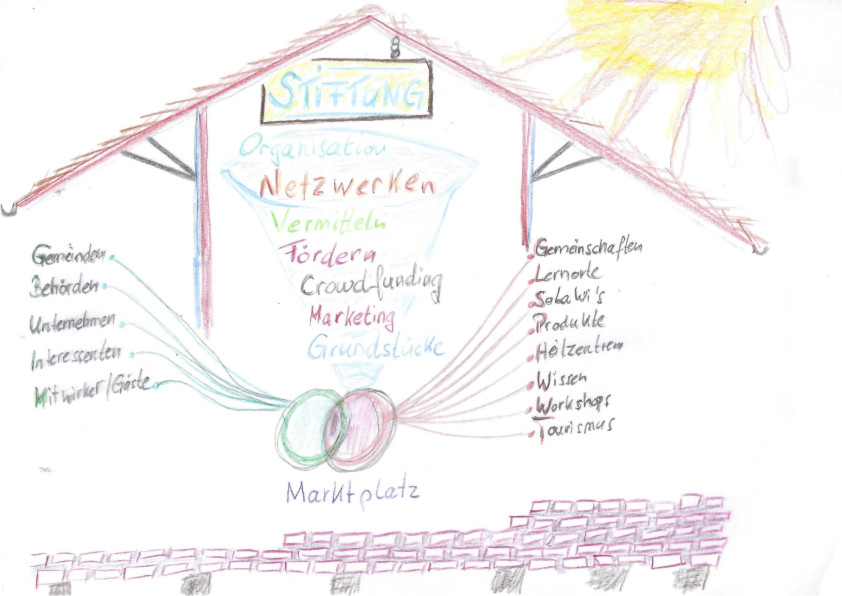 STIFTUNG
Organisation
Netzwerken
Vermitteln
Fördern
Crowdfunding
Marketing
Grundstücke
Gemeinden
Behörden
Unternehmen
Interessenten
Mitwirker/Gäste
Gemeinschaften
Lernorte
SoLaWi's
Produkte
Heilzentren
Wissen
Workshops
Tourismus
Marktplatz